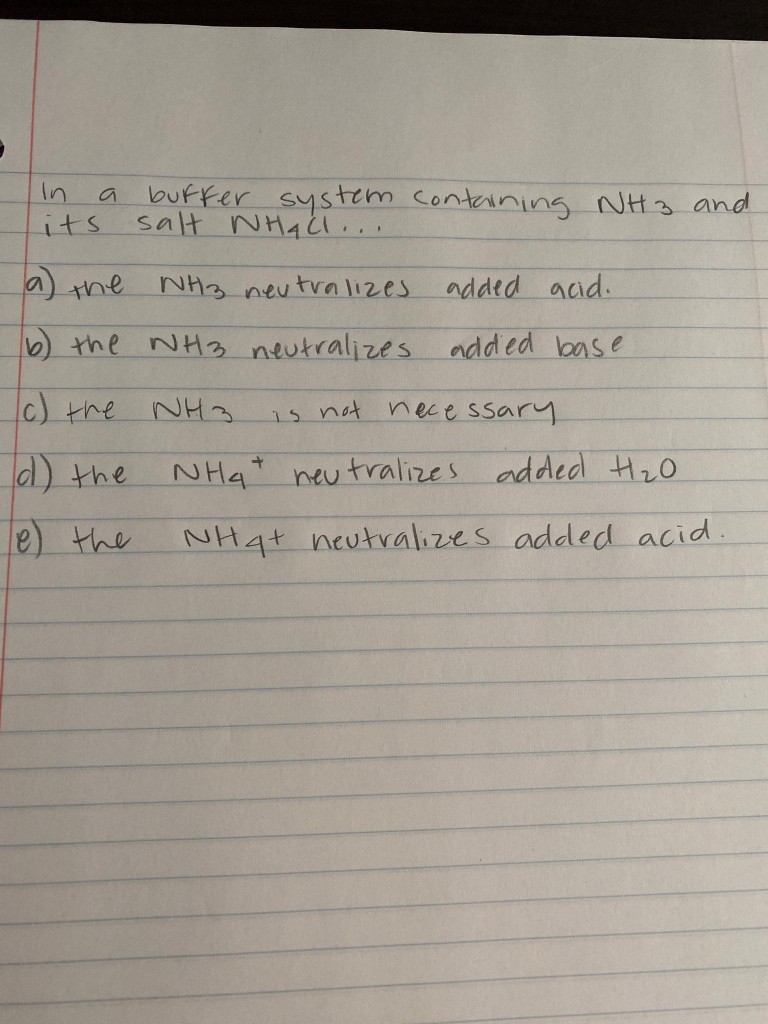 In a buffer system containing NH3 and
its salt NH4Cl...
a) the NH3 neutralizes added acid.
b) the NH3 neutralizes added base
c) the NH3 is not necessary
d) the NH4+ neutralizes added H2O
e) the NH4+ neutralizes added acid.